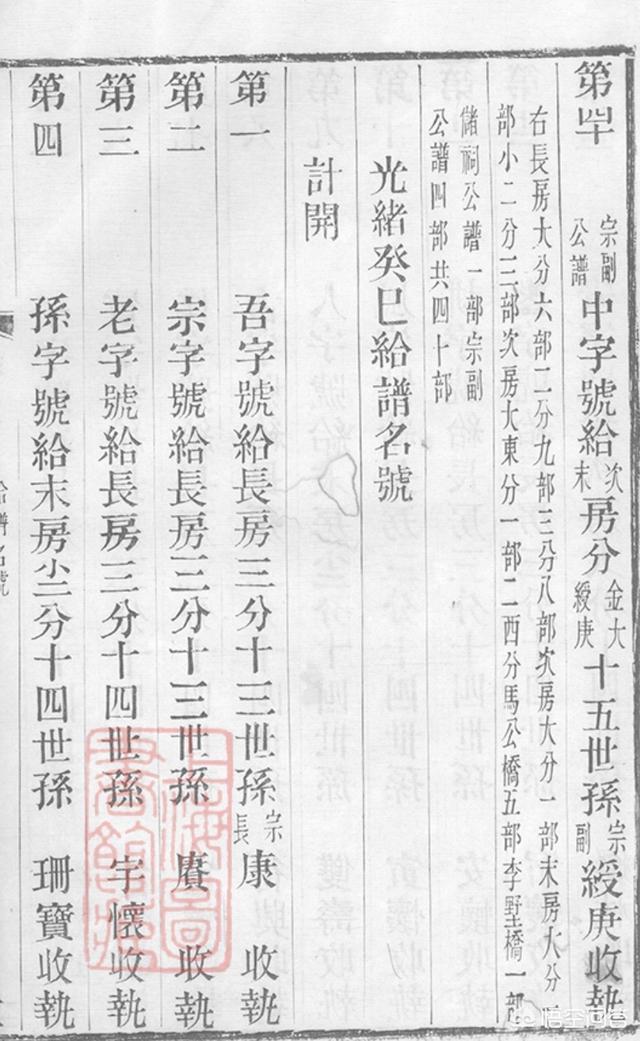 第四十 宗副公譜 中字號給次末房分金大綬庚十五世孫宗副綬庚收執
右長房大分六部二分九部三分八部次房大分一部末房大分一
部小二分三部次房大東分一部二西分馬公橋五部李墅橋一部
儲祠公譜一部宗副
公譜四部共四十部
光緒癸巳給譜名號
計開
第一 吾字號給長房三分十三世孫宗長康 收執
第二 宗字號給長房三分十三世孫 賡 收執
第三 老字號給長房三分十四世孫 宇懷收執
第四 孫字號給末房小二分十四世孫 珊寶收執
給譜名號
上海圖書館藏
悟空问答